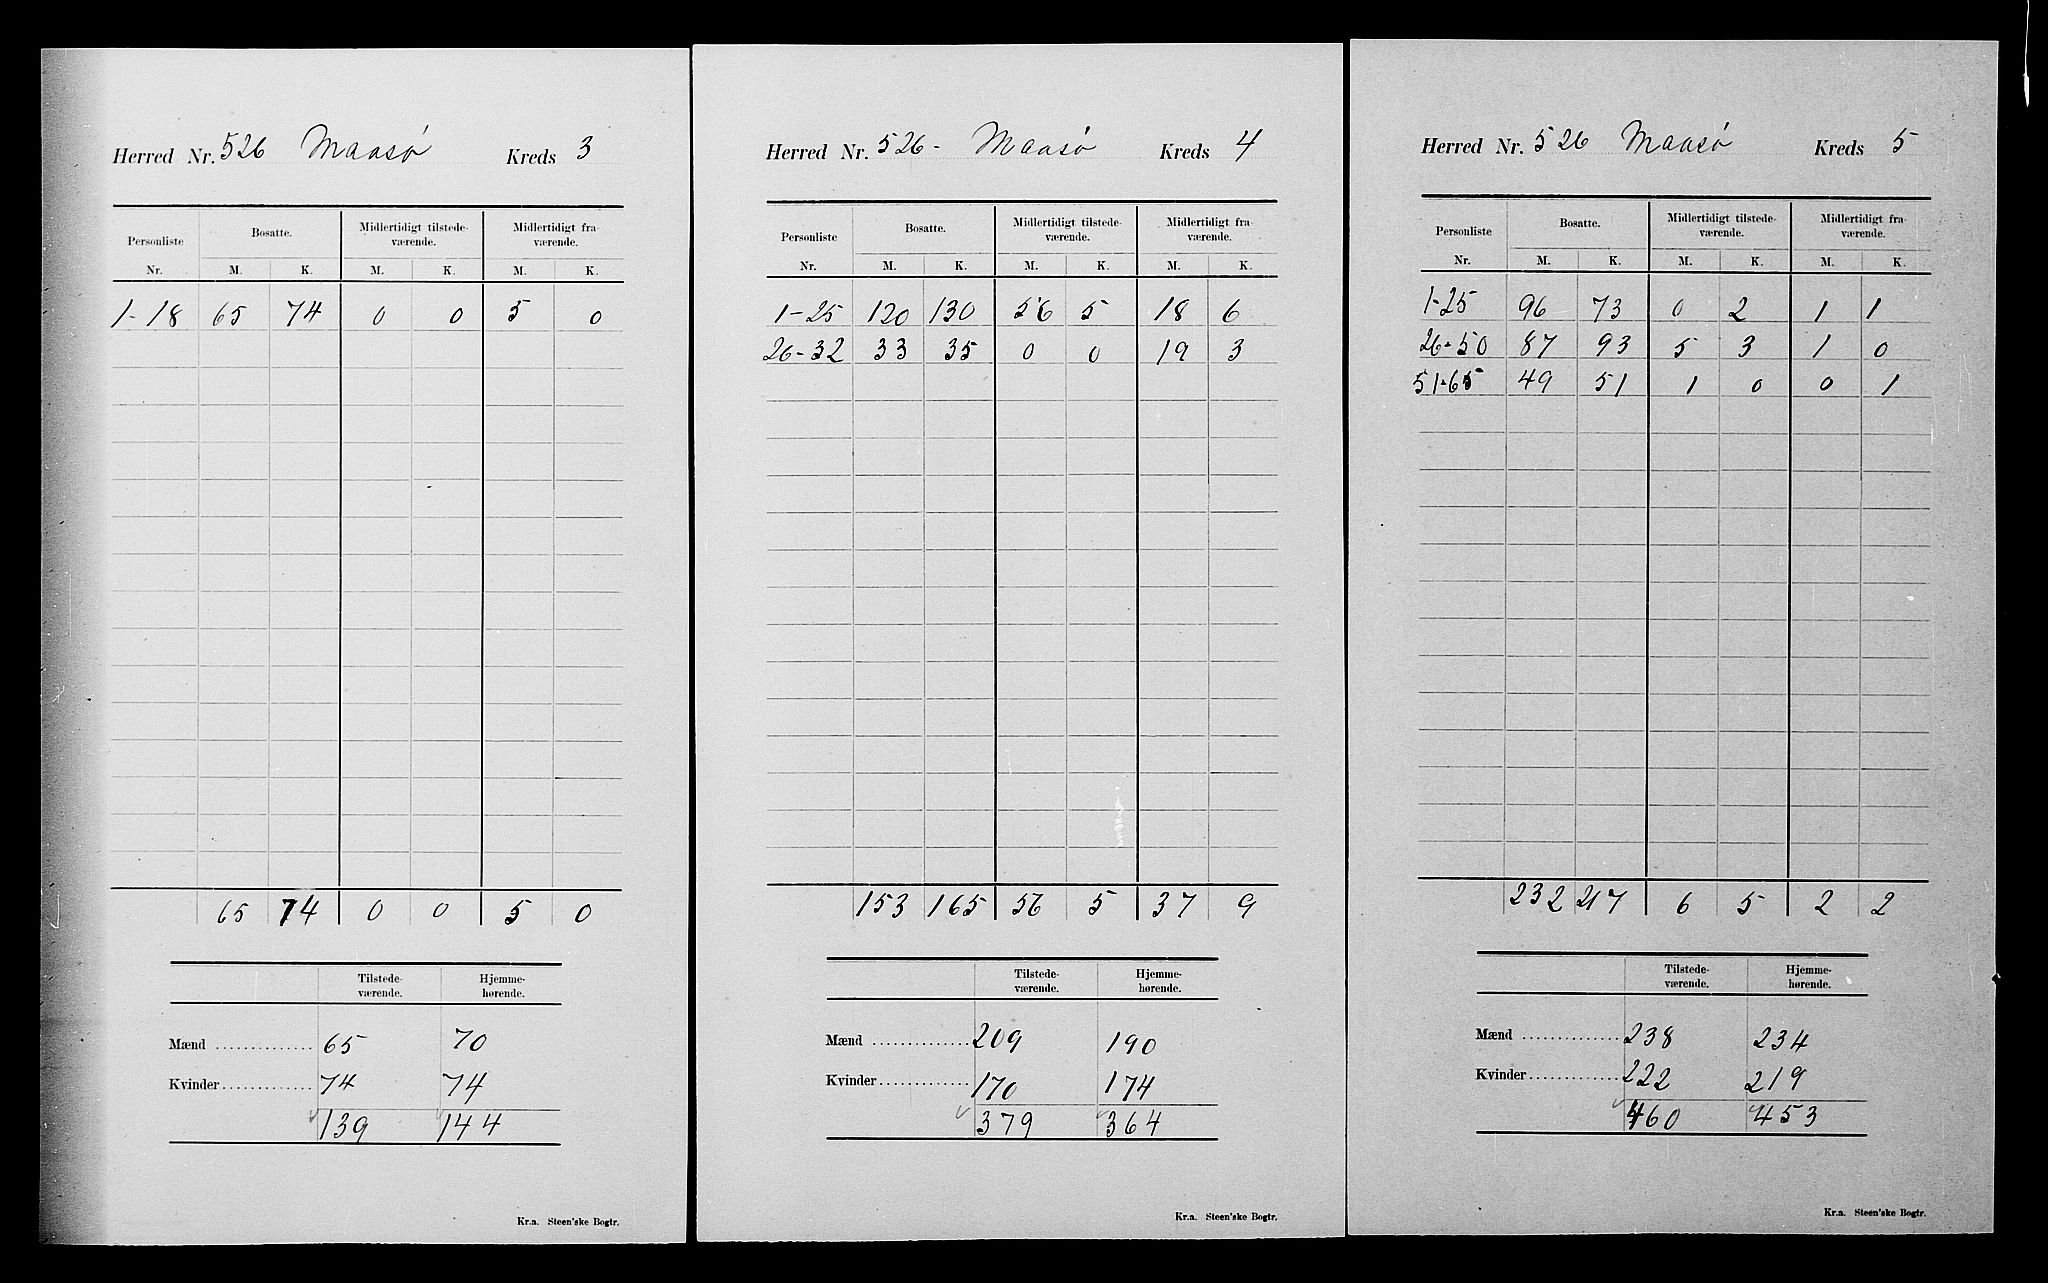 Herred Nr. 526 Maasø Kreds 3
Personliste Bosatte. Midlertidigt tilstede-værende. Midlertidigt fra-værende.
Nr. M. K. M. K. M. K.
1-18 65 74 0 0 5 0
65 74 0 0 5 0
Tilstede-værende. Hjemme-hørende.
Mænd 65 70
Kvinder 74 74
139 144
Kr.a. Steen'ske Bogtr.
Herred Nr. 526- Maasø Kreds 4
Personliste Bosatte. Midlertidigt tilstede-værende. Midlertidigt fra-værende.
Nr. M. K. M. K. M. K.
1-25 120 130 56 5 18 6
26-32 33 35 0 0 19 3
153 165 56 5 37 9
Tilstede-værende. Hjemme-hørende.
Mænd 209 190
Kvinder 170 174
379 364
Kr.a. Steen'ske Bogtr.
Herred Nr. 526 Maasø Kreds 5
Personliste Bosatte. Midlertidigt tilstede-værende. Midlertidigt fra-værende.
Nr. M. K. M. K. M. K.
1-25 96 73 0 2 1 1
26-50 87 93 5 3 1 0
51-65 49 51 1 0 0 1
232 217 6 5 2 2
Tilstede-værende. Hjemme-hørende.
Mænd 238 234
Kvinder 222 219
460 453
Kr.a. Steen'ske Bogtr.